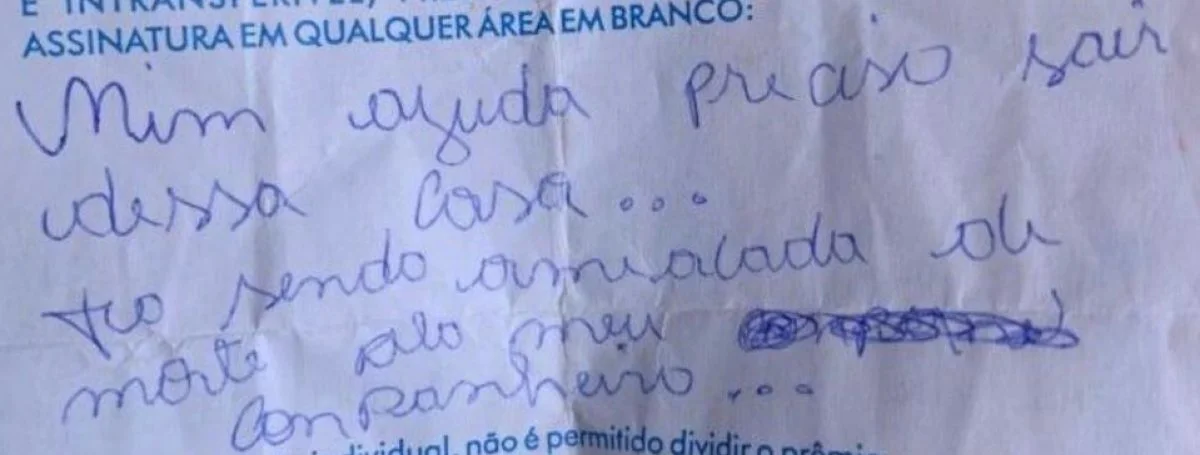 E INTRANSFERÍVEL,
ASSINATURA EM QUALQUER ÁREA EM BRANCO:
Mim ajuda preciso sair
dessa casa...
to sendo amiacada de
morte pelo meu
companheiro...
individual, não é permitido dividir o prêmio